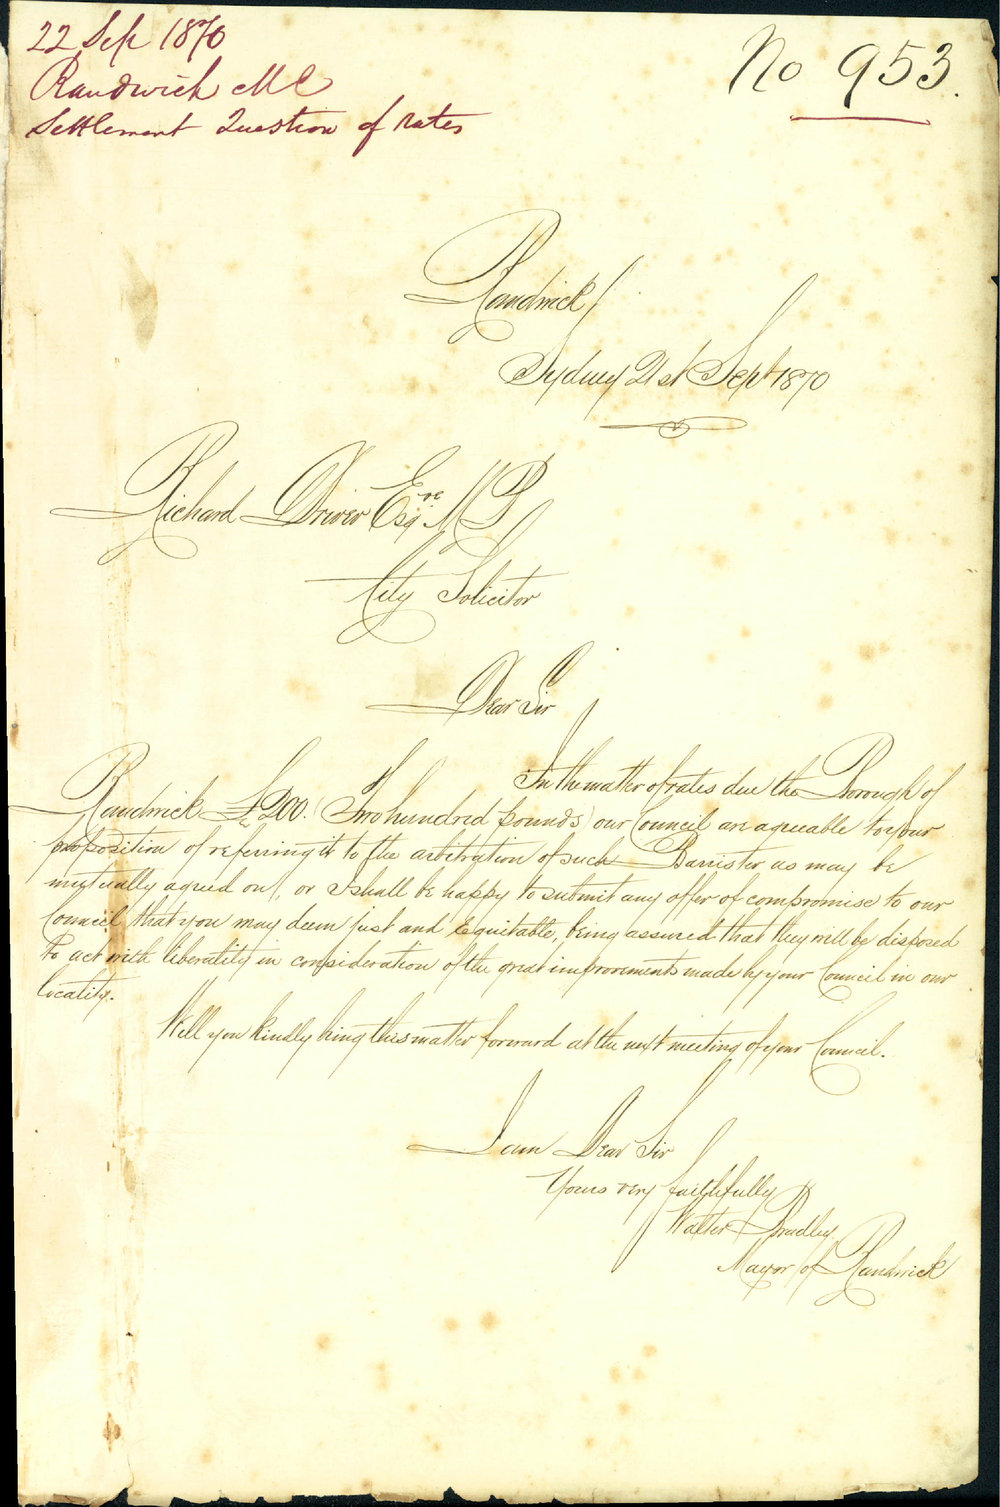 22 Sep 1870
Randwick M C
Settlement Question of rates
No 953.
Randwick/
Sydney 21st Sept 1870
Richard Driver Esqre M P
City Solicitor
Dear Sir
In the matter of rates due the Borough of
Randwick £200. (Two hundred pounds) our Council are agreeable to your
proposition of referring it to the arbitration of such Barrister as may be
mutually agreed on, or I shall be happy to submit any offer of compromise to our
Council that you may deem just and Equitable, being assured that they will be disposed
to act with liberality in consideration of the great improvements made by your Council in our
locality.
Will you kindly bring this matter forward at the next meeting of your Council.
I am Dear Sir
Yours very faithfully
Walter Bradley
Mayor of Randwick